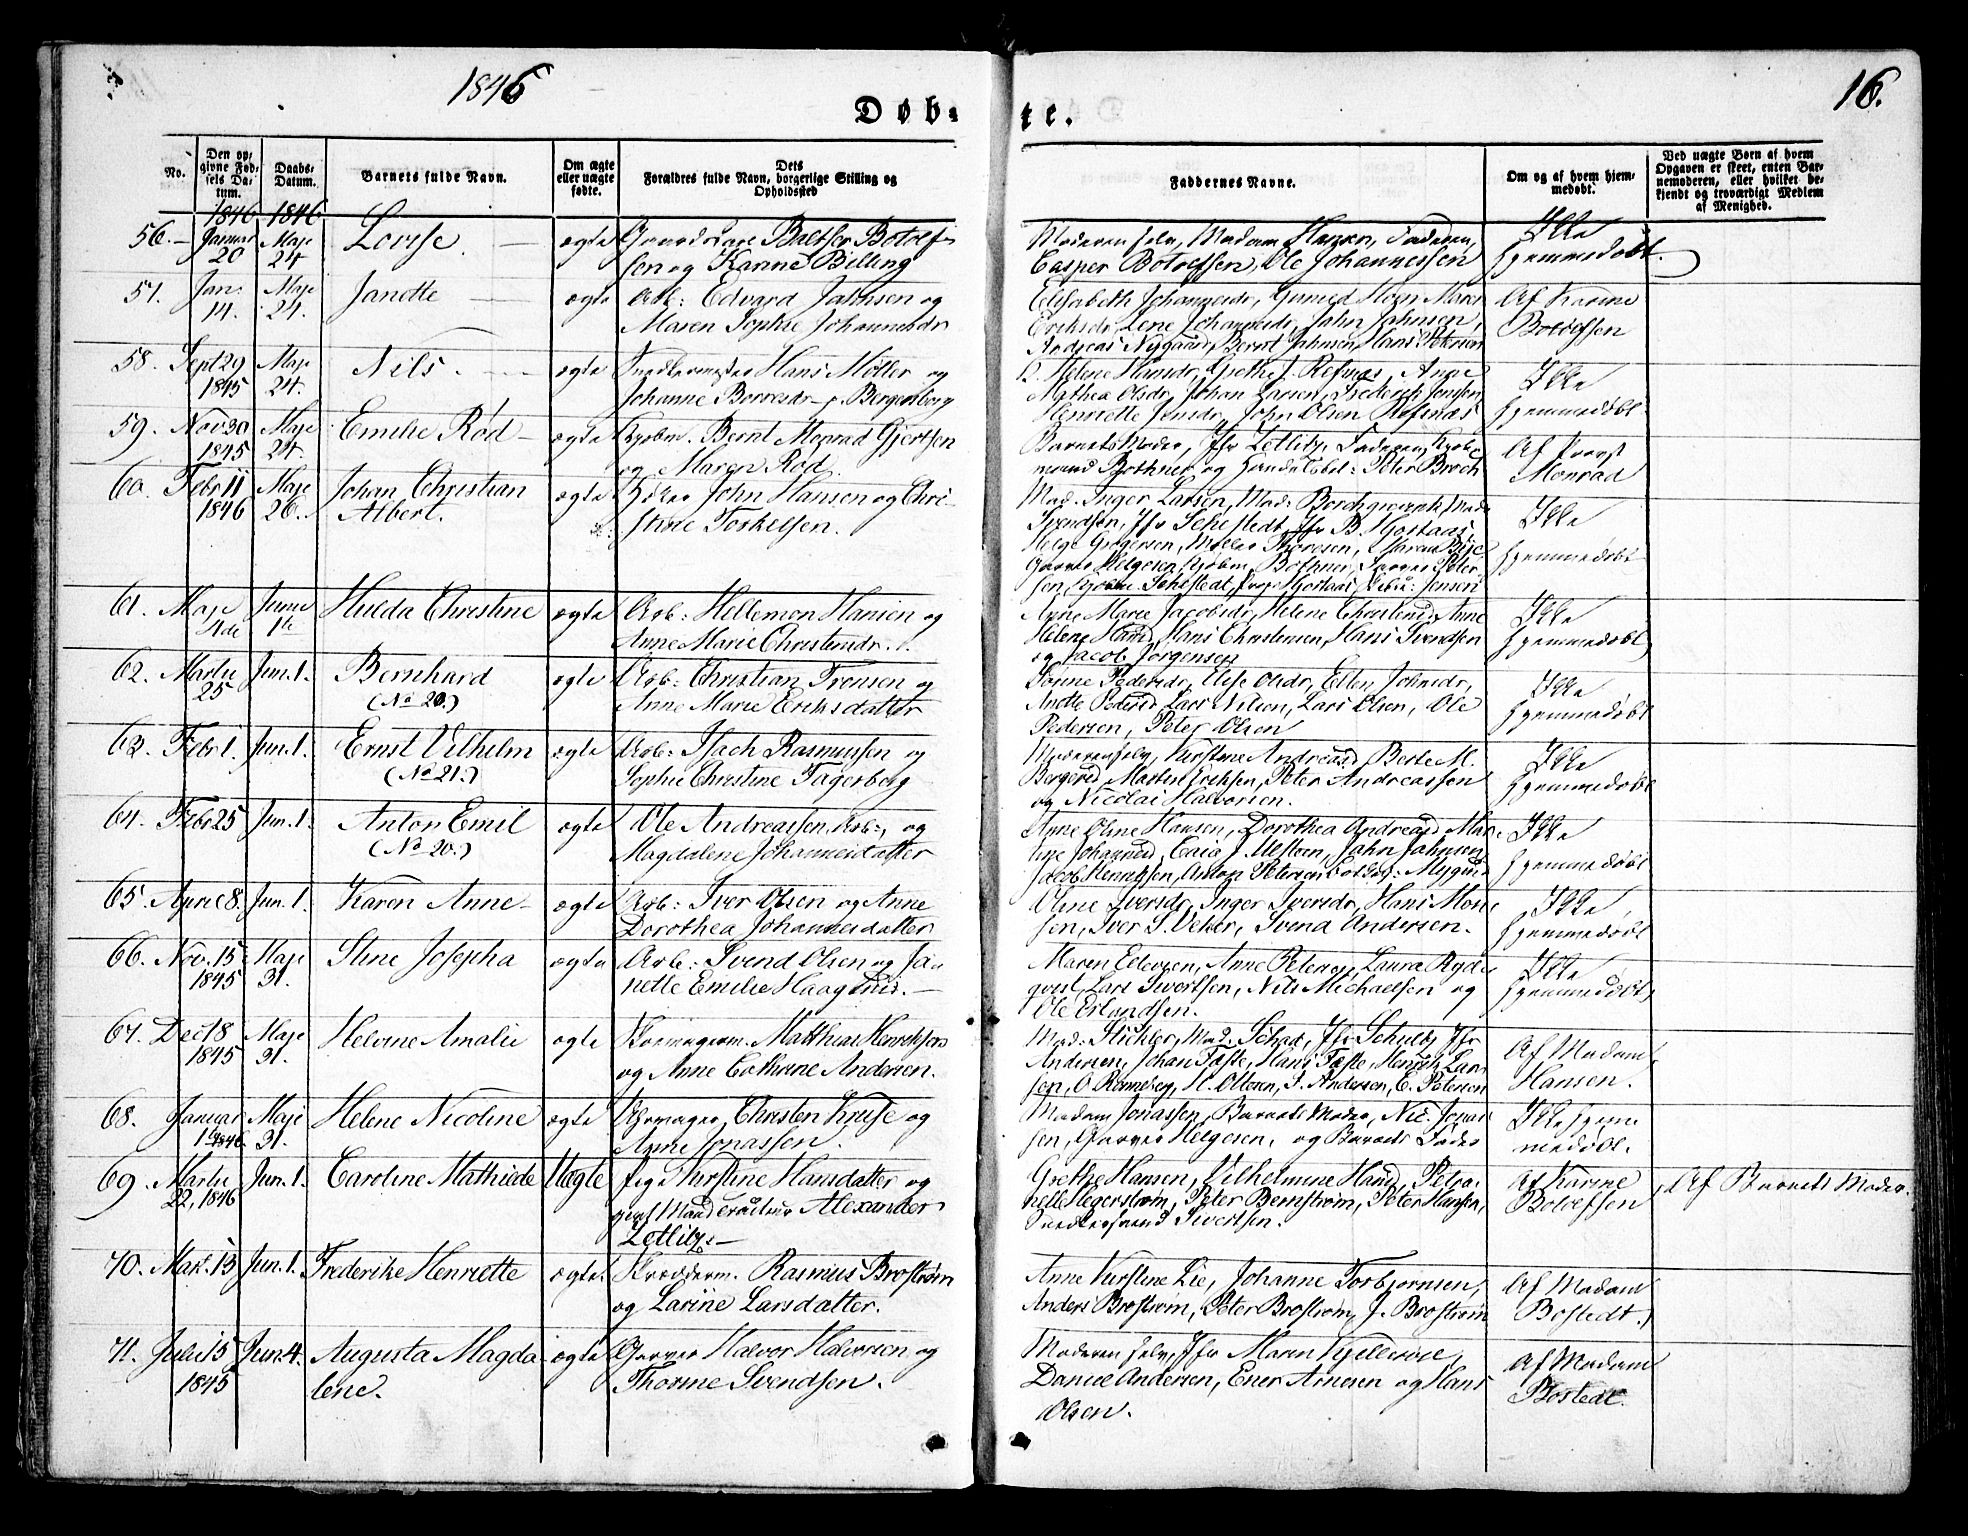 1846
16.
Døb-
te.
No.
Den op-
givne Fød-
sels Da-
tum.
Daabs-
Datum.
Barnets fulde Navn.
Om ægte
eller uægte
fødte.
Dets
Forældres fulde Navn, borgerlige Stilling og
Opholdssted
Faddernes Navne.
Om og af hvem hjem-
medøbt.
Ved uægte Børn af hvem
Opgaven er skeet, enten Bar-
nemoderen, eller hvilket be-
kjendt og troværdigt Medlem
af Menighed.
1846 1846
56. Januar 20 Maje 24. Lovise ægte Baltser Botolf-
sen og Karine Billing
Moderen selv, Madam Hansen, Faderen,
Casper Botolfsen, Ole Johannessen
Ikke
hjemmedøbt.
57. Jan. 14. Maje 24. Janette ægte Arb: Edvard Jahnsen og
Maren Sophie Johannesdr
Elisabeth Johannesdr, Maren
Eriksdr, Lene Johannesdr, Jahn Jahnsen,
Andreas Nygaard, Bernt Jahnsen, Hans Petersen
Af Karine
Botolfsen
58. Sept 29 1845 Maje 24. Nils. ægte Snedkermester Hans Möller og
Johanne Borresdr
Helene Hansdr, Grethe J. Refsnæs, Anne
Mathea Olsdr, Johan Larsen, Frederik Jensen
Henriette Jensdr, John Olsen Refsnæs
Ikke
hjemmedøbt
59. Nov 30 1845 Maje 24. Emilie Rød ægte Kjøbm. Bernt Monrad Gjertsen
og Maren Rød.
Barnets Moder, Jfr Zetlitz, Faderen, Kjøb-
mand Bothner og Handelsbet: Peter Broch
Af Provst
Monrad
60. Febr 11 1846 Maje 26. Johan Christian
Albert.
ægte Høker John Hansen og Chri-
stine Torkelsen.
Mad. Inger Larsen, Mad: Borchgrevink, Mad
Svendsen, Jfr Sehestedt, Jfr B. Hostaas,
Helge Gregersen, Møller Thoresen,
Garver Helgesen, Kjøbm. Bothner, Peter-
sen, Kjøbm. Sehestedt, Jensen
Ikke
hjemmedøbt
61. Maje 4de Junie 1te Hulda Christine ægte Arb: Hellemon Hansen og
Anne Marie Christensdr.
Anne Marie Jacobsdr, Helene Christensd, Anne
Helene Hansd, Hans Christensen, Hans Svendsen
og Jacob Jørgensen
Ikke
hjemmedøbt
62. Martii 25 Jun. 1. Bernhard
(No 20.)
ægte Arb: Christian Fronsen og
Anne Marie Eriksdatter
Tonne Pedersdr, Else Olsdr, Ellen Johnsdr,
Anette Pedersd, Lars Nilsen, Lars Olsen, Ole
Pedersen, Peter Olsen
Ikke
hjemmedøbt
63. Febr 1. Jun. 1. Ernst Vilhelm
(No 21.)
ægte Arb: Isach Rasmussen og
Sophie Christine Fagerberg
Moderen selv, Kirstine Andreasd, Berte M.
Bergersd, Martin Eriksen, Peter Andreassen
og Nicolai Halvorsen.
Ikke
hjemmedøbt
64. Febr 25 Jun. 1. Anton Emil
(No 20.)
ægte Ole Andreassen, Arb:, og
Magdalene Johannesdatter
Anne Oline Hansen, Dorothea Andreasd, Mar-
tine Johannesd, Jahn Jahnsen,
Jacob Henriksen, Anton Petersen
Ikke
hjemmedøbt
65. April 8. Jun. 1. Karen Anne ægte Arb: Iver Olsen og Anne
Dorothea Johannesdatter
Oline Iversdr, Inger Iversdr, Hans Mon-
sen, Iver S. Veker, Svend Andersen.
Ikke
hjemmedøbt
66. Nov. 15 1845 Maje 31. Stine Josepha ægte Arb: Svend Olsen og Ja-
nette Emilie Haagensd.
Maren Ellevsen, Anne Petersen, Laura Ryd-
qvist, Lars Sivertsen, Nils Michaelsen og
Ole Erlandsen.
Ikke
hjemmedøbt
67. Dec 18 1845 Maje 31. Helvine Amalie ægte Skomagerm. Matthias Henriksen
og Anne Cathrine Andersen.
Mad. Stichler, Mad. Schad, Jfr Schultz, Jfr
Andersen, Johan Tafte, Hans Tafte, Henrik Lar-
sen, O. Ramberg, H. Olsen, S. Andersen, C. Petersen
Af Madam
Hansen.
68. Januar 1 1846 Maje 31. Helene Nicoline ægte Christen Kruse og
Anne Jonassen.
Madam Jonassen, Barnets Moder, Nic: Jonas-
sen, Garver Helgesen, og Barnets Fader
Ikke hjem-
medøbt.
69. Martii 22, 1846 Jun. 1. Caroline Mathilde Uægte Pige Kirstine Hansdatter og
Alexander
Zetlitz.
Grethe Hansen, Vilhelmine Hansd, Petro-
nelle Hegerstrøm, Peter Bernstrøm, Peter Hansen,
Snedkersvend Sivertsen.
Af Karine
Botolfsen
Af Barnets Moder.
70. Mar. 15 Jun. 1. Frederike Henriette ægte Skræderm. Rasmus Brostrøm
og Larine Larsdatter.
Anne Kirstine Lie, Johanne Torbjørnsen,
Anders Brostrøm, Peter Brostrøm, J. Brostrøm
Af Madam
Bostedt.
71. Julii 15 1845 Jun. 4. Augusta Magda-
lene.
ægte Garver Halvor Halvorsen og
Thorine Svendsen.
Moderen selv, Jfr Maren Kjellevold,
Daniel Andersen, Ener Arnesen og Hans
Olsen.
Af Madam
Bostedt.